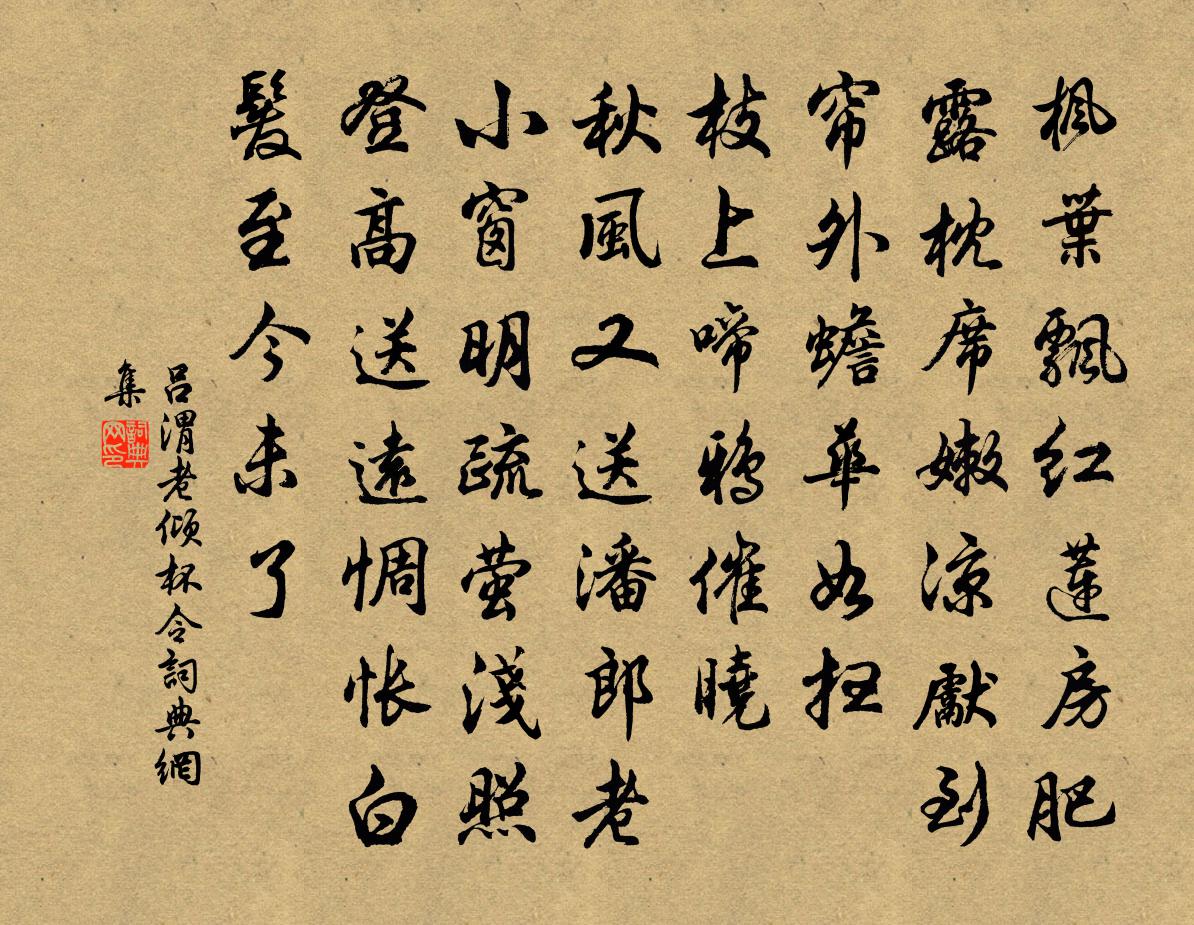 楓葉飄红蓮房肥
露枕席嫩凉獻到
帘外蟾華如扫
枝上啼鴉催曉
秋風又送潘郎老
小窗明疏螢淺照
登高送遠惆怅白
髮至今未了
呂渭老傾杯令詞典網
集
詞典
网印